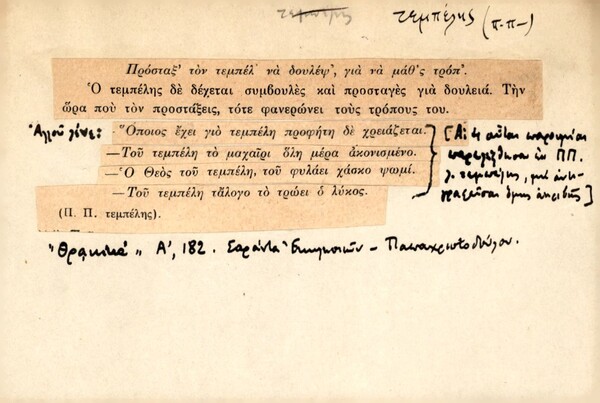 τεμπέλης τεμπέλης (π.π–)
Πρόσταξ’ τὸν τεμπέλ’ νὰ δουλέψ’, γιὰ νὰ μάθ’ς τρόπ’.
Ὁ τεμπέλης δὲ δέχεται συμβουλὲς καὶ προσταγὲς γιὰ δουλειά. Τὴν
ὥρα ποὺ τὸν προστάξεις, τότε φανερώνει τοὺς τρόπους του.
Ἀλλοῦ λένε: —Ὅποιος ἔχει γιὸ τεμπέλη προφήτη δὲ χρειάζεται.
—Τοῦ τεμπέλη τὸ μαχαῖρι ὅλη μέρα ἀκονισμένο.
—Ὁ Θεὸς τοῦ τεμπέλη, τοῦ φυλάει χάσκο ψωμί.
—Τοῦ τεμπέλη τἄλογο τὸ τρώει ὁ λύκος.
(Π. Π. τεμπέλης).
[Αἱ 4 αὗται παροιμίαι
παρελήφθησαν ἐκ Π.Π.
λ. τεμπέλης, μὴ ἀντι-
γραφεῖσαι ὅμως ἀκριβῶς]
"Θρακικά" Α', 182. Σαράντα Ἐκκλησιῶν – Παπαχριστοδούλου.